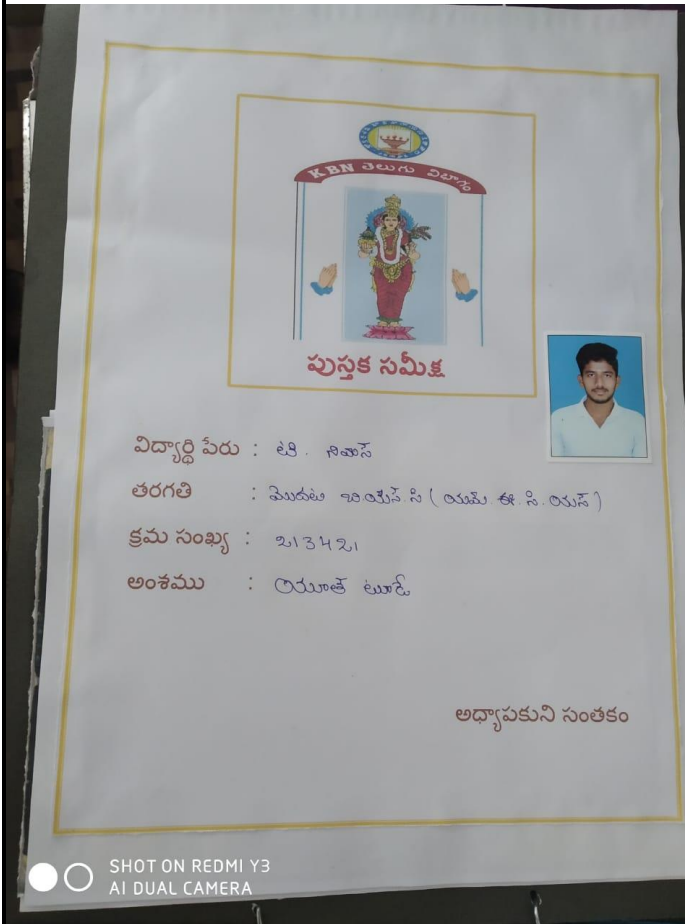 KBN తెలుగు విభాగం
పుస్తక సమీక్ష
విద్యార్థి పేరు : టి. నివాస్
తరగతి : మొదట బియస్.సి (యమ్.ఈ.సి.యస్)
క్రమ సంఖ్య : 213421
అంశము : యూత్ టూడే
అధ్యాపకుని సంతకం
SHOT ON REDMI Y3
AI DUAL CAMERA